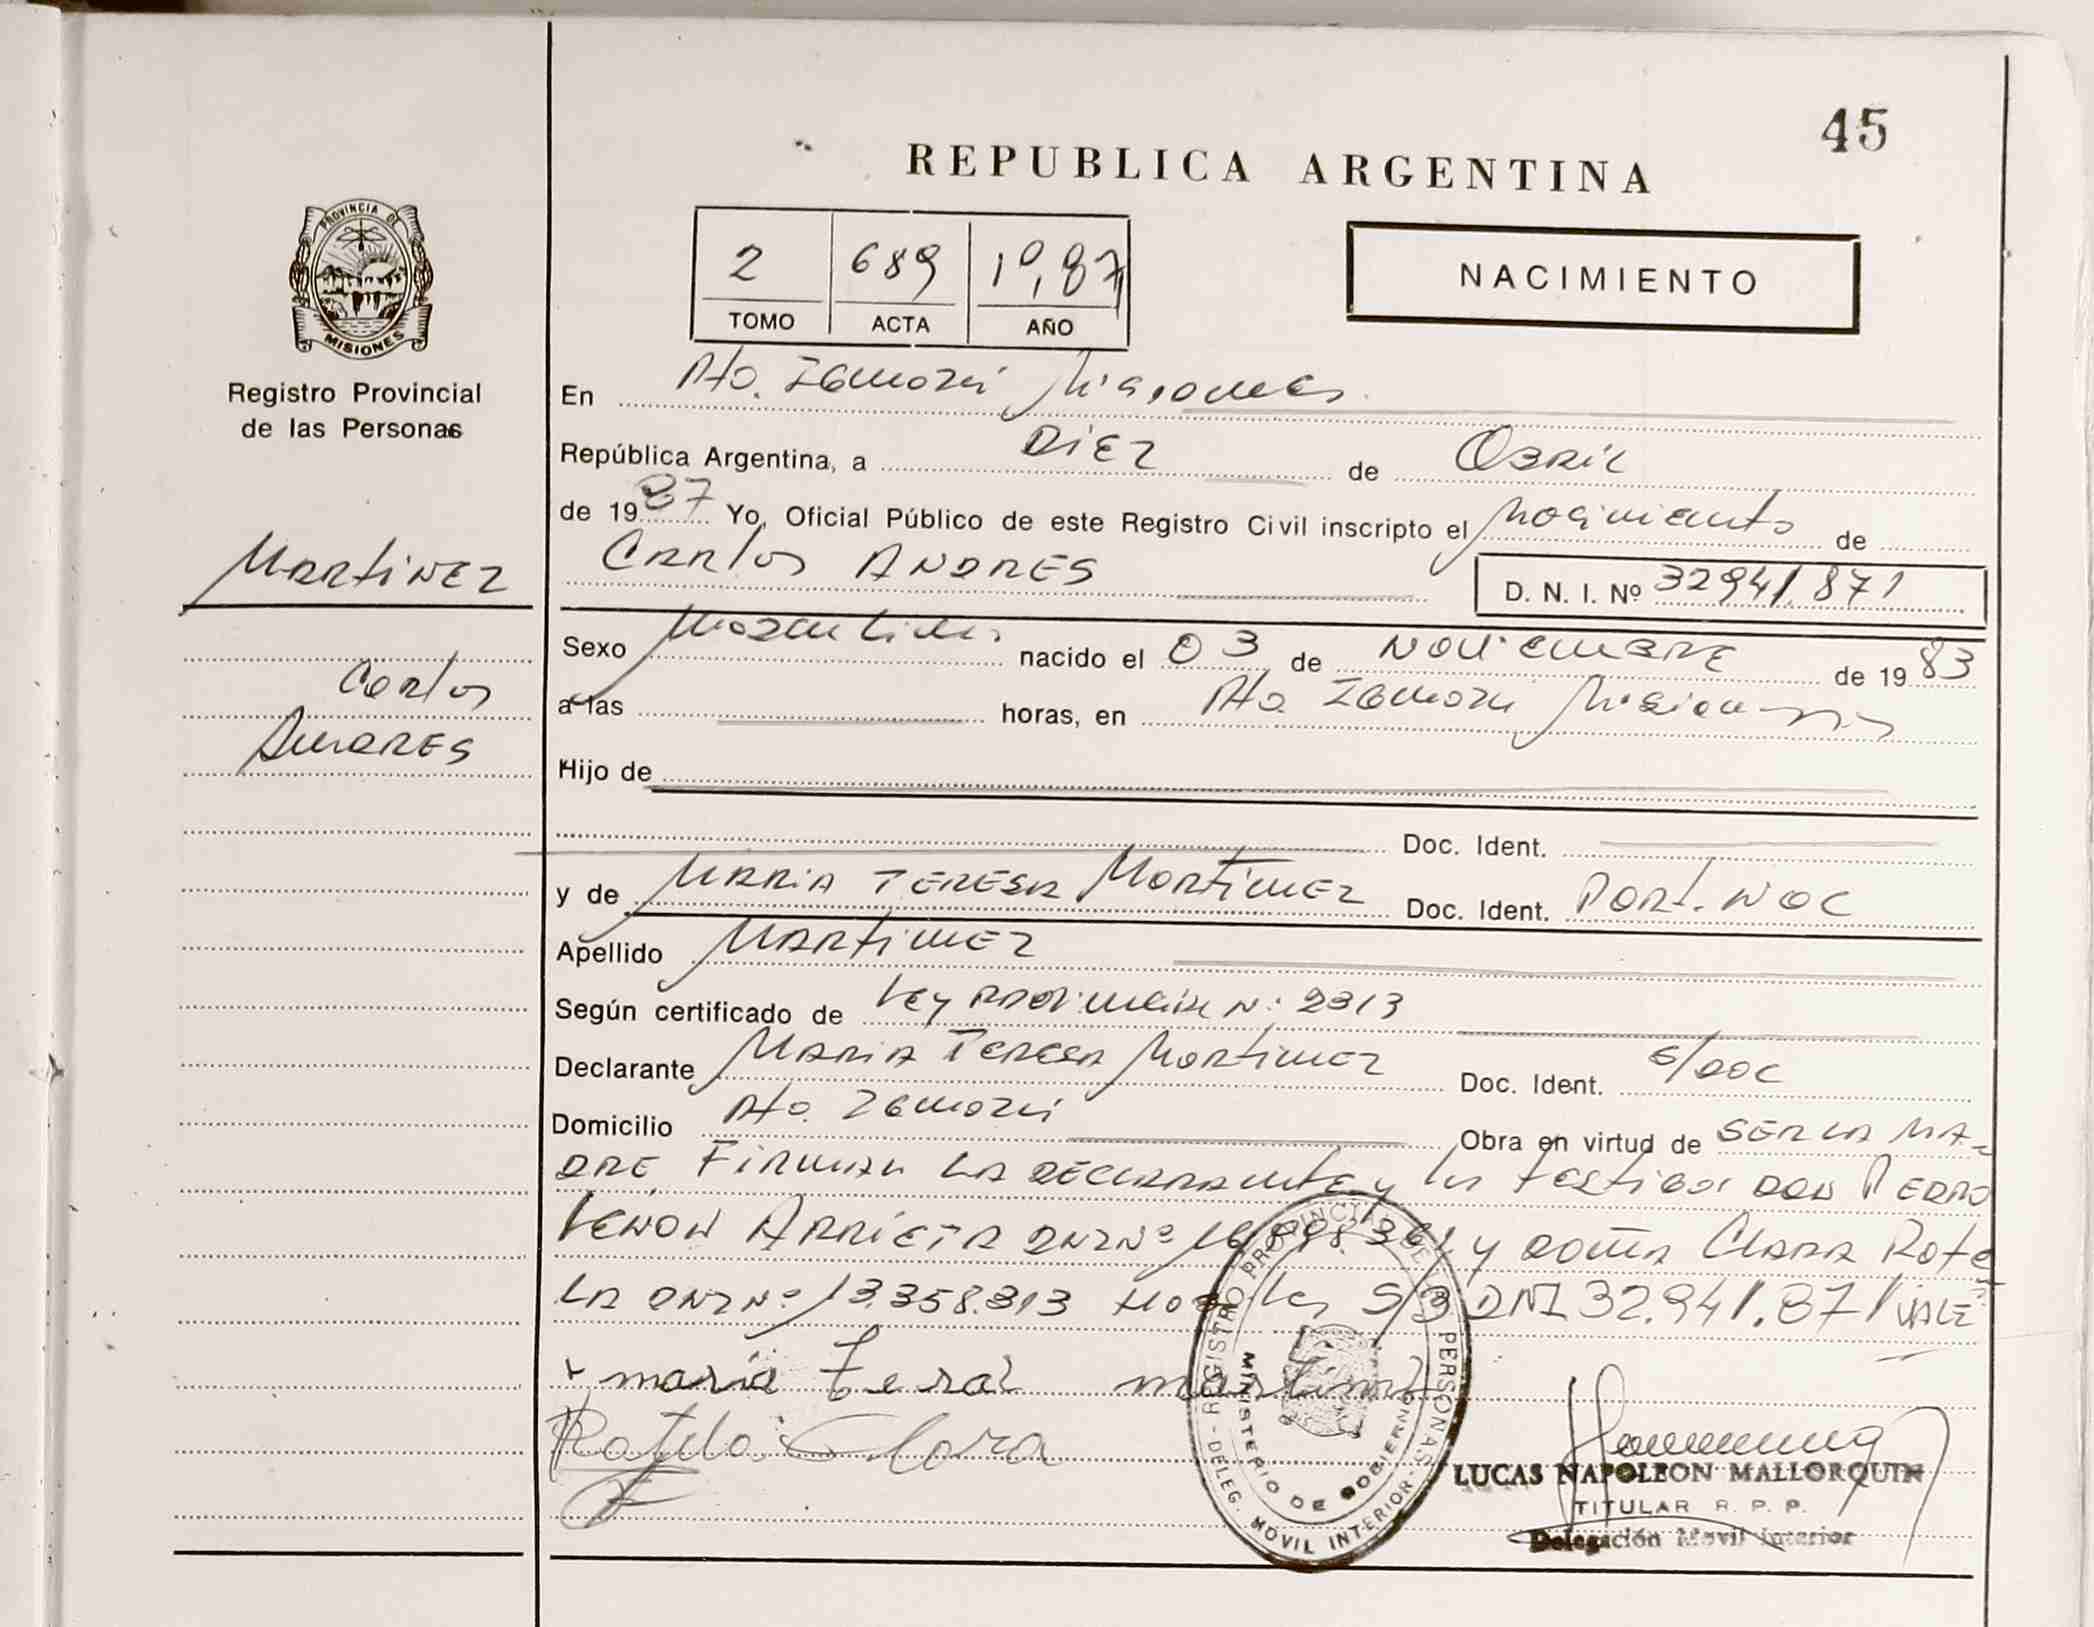 45
REPUBLICA ARGENTINA
2 689 1987
TOMO ACTA AÑO
NACIMIENTO
PROVINCIA DE
MISIONES
Registro Provincial
de las Personas
En Pto. Misiones
República Argentina, a DIEZ de ABRIL
de 1987 Yo, Oficial Público de este Registro Civil inscripto el Nacimiento de
Carlos ANDRES D. N. I. Nº 32941.871
MARTINEZ
Sexo Masculino nacido el 03 de NOVIEMBRE de 1983
Carlos
ANDRES
a las horas, en Pto. Misiones
Hijo de
Doc. Ident.
y de MARIA TERESA MARTINEZ Doc. Ident. PORT. NOC
Apellido MARTINEZ
Según certificado de Ley PROVINCIAL N: 2313
Declarante MARIA TERESA MARTINEZ Doc. Ident. S/DOC
Domicilio Pto. Obra en virtud de SER LA MA-
DRE. FIRMAN LA DECLARANTE y los testigos DON PEDRO
ARRIETA DNI Nº y DOÑA CLARA ROTE
LA DNI Nº 13.358.313 S/B DNI 32.941.871 VALE
maria teras martinez
Clara
REGISTRO PROVINCIAL DE LAS PERSONAS - DELEG. MOVIL INTERIOR -
MINISTERIO DE GOBIERNO
LUCAS NAPOLEON MALLORQUIN
TITULAR R. P. P.
Delegación Movil Interior